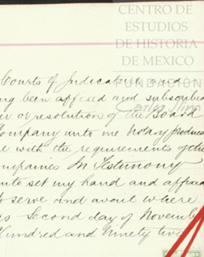 CENTRO DE
ESTUDIOS
DE HISTORIA
DE MEXICO
Courts of Judicature and
ing been affixed and subscribed
er or resolution of the Board
Company unto me Notary produced
e with the requirements of the
ompanies In Testimony
unto set my hand and affixed
to serve and avail where
es Second day of November
Hundred and Ninety